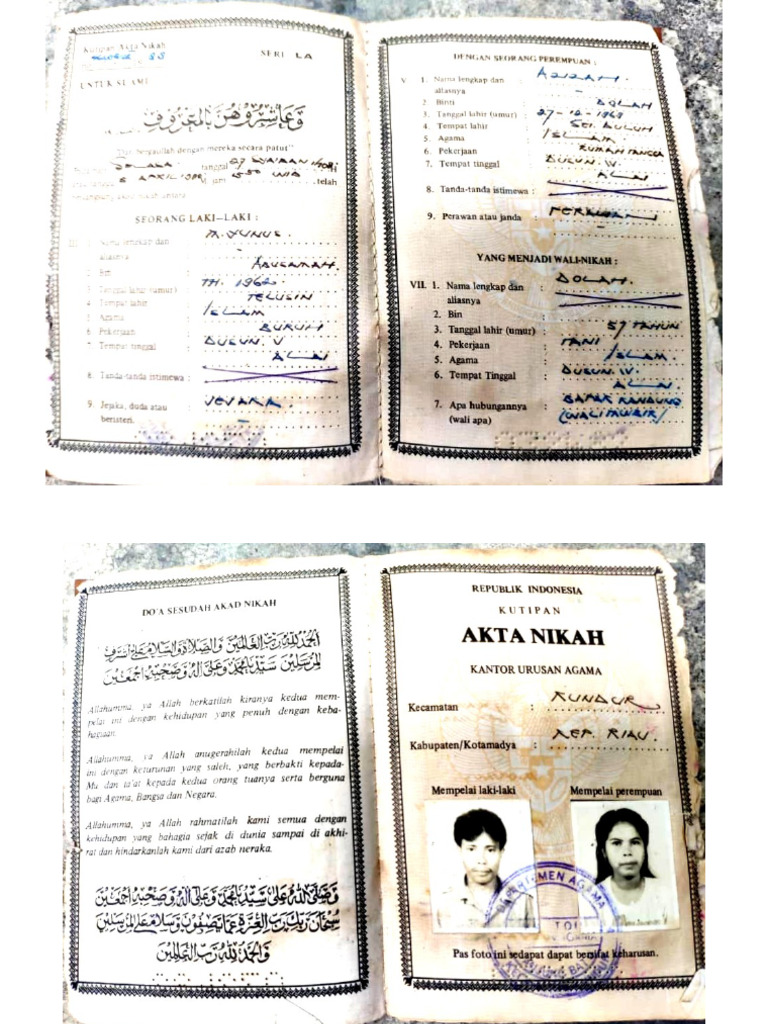 Kutipan Akta Nikah
SERI LA
UNTUK SUAMI
وَعَاشِرُوْهُنَّ بِالْمَعْرُوْفِ
bergaullah dengan mereka secara patut"
tanggal 27
5 APRIL jam WIB telah
akad nikah antara
SEORANG LAKI-LAKI :
III 1. Nama lengkap dan M. YUNUS.
aliasnya -
2. Bin
3. Tanggal lahir (umur) TH. 1962
4. Tempat lahir TELUSIN
5. Agama ISLAM
6. Pekerjaan BURUH
7. Tempat tinggal DUSUN V
ALAI
8. Tanda-tanda istimewa :
9. Jejaka, duda atau JEJAKA.
beristeri.
DENGAN SEORANG PEREMPUAN :
V. 1. Nama lengkap dan : AZIZAH.
aliasnya -
2. Binti : DOLAH
3. Tanggal lahir (umur) : 27-12-1968
4. Tempat lahir : SEI. BULUH
5. Agama : ISLAM
6. Pekerjaan : RUMAH TANGGA
7. Tempat tinggal : DUSUN V.
ALAI
8. Tanda-tanda istimewa :
9. Perawan atau janda : PERAWAN
YANG MENJADI WALI-NIKAH :
VII. 1. Nama lengkap dan : DOLAH.
aliasnya
2. Bin :
3. Tanggal lahir (umur) : 57 TAHUN
4. Pekerjaan : TANI
5. Agama : ISLAM.
6. Tempat Tinggal : DUSUN IV.
ALAI.
7. Apa hubungannya : BAPAK KANDUNG
(wali apa) (WALI MUJBIR)
DO'A SESUDAH AKAD NIKAH
اَلْحَمْدُ لِلّٰهِ رَبِّ الْعَالَمِيْنَ وَالصَّلَاةُ وَالسَّلَامُ عَلَى اَشْرَفِ
الْمُرْسَلِيْنَ سَيِّدِنَا مُحَمَّدٍ وَعَلَى اٰلِهِ وَصَحْبِهِ اَجْمَعِيْنَ
Allahumma, ya Allah berkatilah kiranya kedua mem-
pelai ini dengan kehidupan yang penuh dengan keba-
hagiaan.
Allahumma, ya Allah anugerahilah kedua mempelai
ini dengan keturunan yang saleh, yang berbakti kepada-
Mu dan ta'at kepada kedua orang tuanya serta berguna
bagi Agama, Bangsa dan Negara.
Allahumma, ya Allah rahmatilah kami semua dengan
kehidupan yang bahagia sejak di dunia sampai di akhi-
rat dan hindarkanlah kami dari azab neraka.
وَصَلَّى اللّٰهُ عَلَى سَيِّدِنَا مُحَمَّدٍ وَعَلَى اٰلِهِ وَصَحْبِهِ اَجْمَعِيْنَ
سُبْحَانَ رَبِّكَ رَبِّ الْعِزَّةِ عَمَّا يَصِفُوْنَ وَسَلَامٌ عَلَى الْمُرْسَلِيْنَ
وَالْحَمْدُ لِلّٰهِ رَبِّ الْعَالَمِيْنَ
REPUBLIK INDONESIA
KUTIPAN
AKTA NIKAH
KANTOR URUSAN AGAMA
Kecamatan : KUNDUR
Kabupaten/Kotamadya : KEP. RIAU.
Mempelai laki-laki Mempelai perempuan
DEPARTEMEN AGAMA
Pas foto ini sedapat dapat bersifat keharusan.